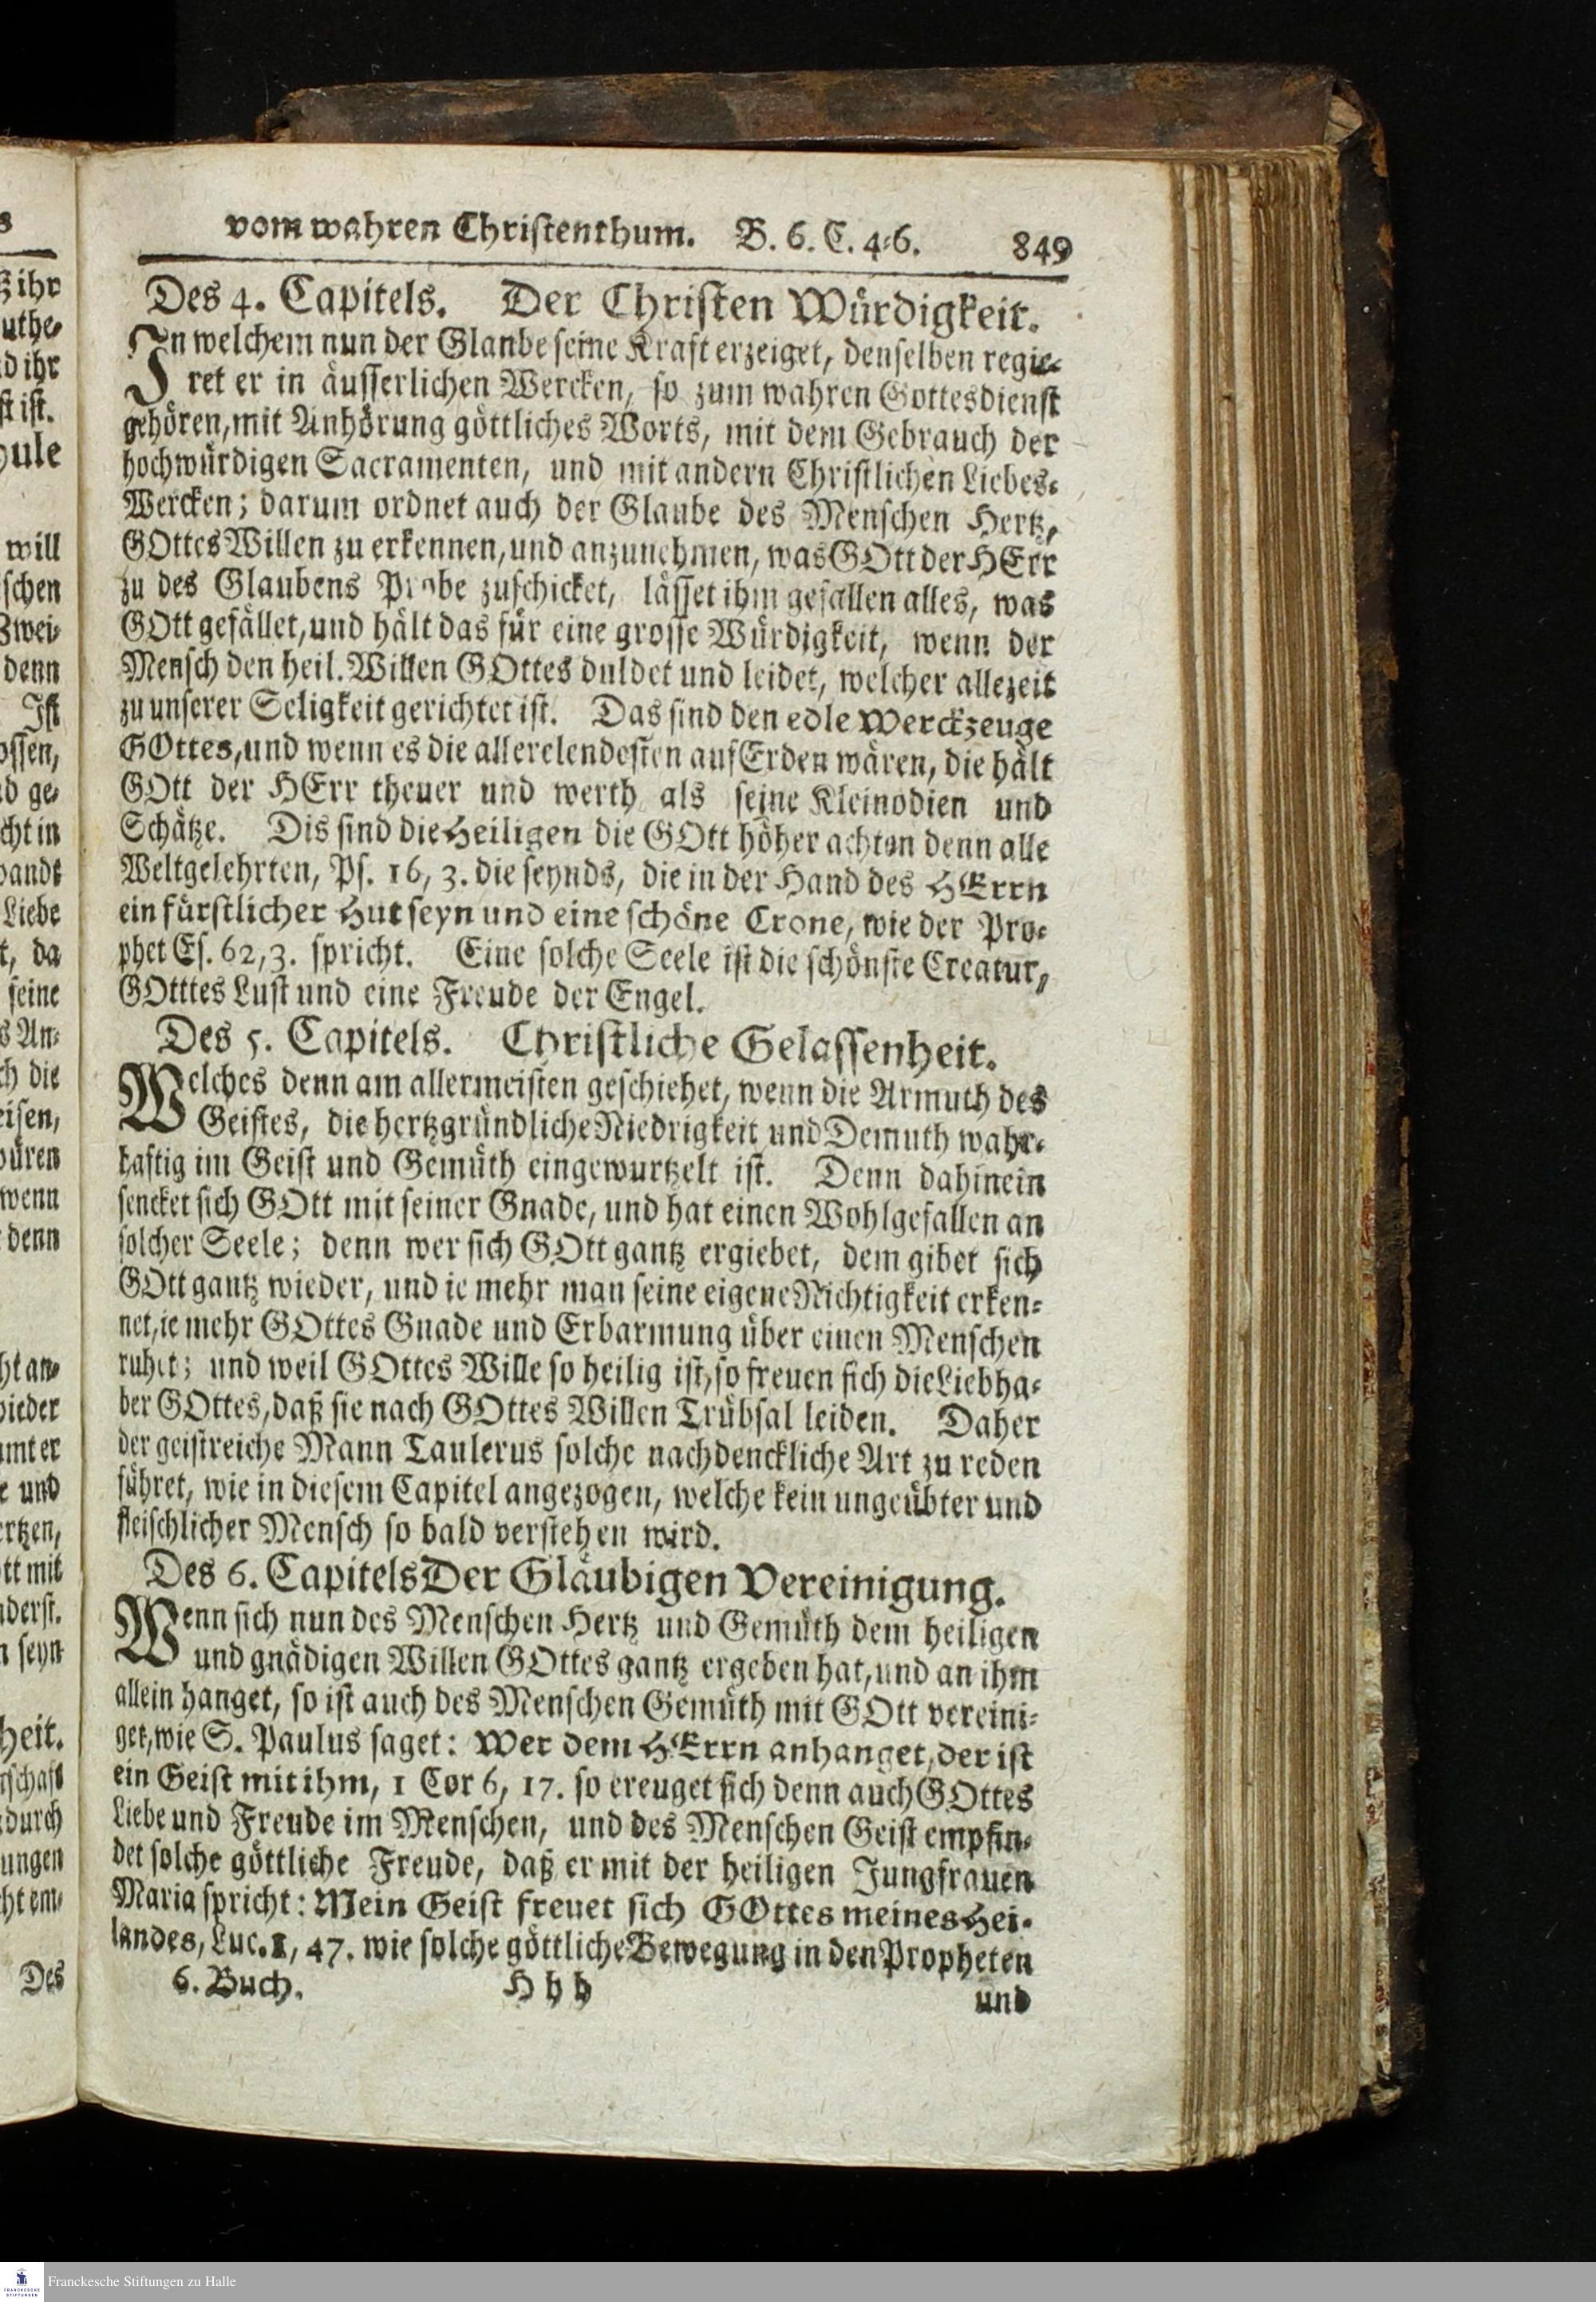 vom wahren Christenthum. B. 6. C. 4-6. 849
Des 4. Capitels. Der Christen Würdigkeit.
In welchem nun der Glanbe seine Kraft erzeiget, denselben regie-
ret er in äusserlichen Wercken, so zum wahren Gottesdienst
gehören, mit Anhörung göttliches Worts, mit dem Gebrauch der
hochwürdigen Sacramenten, und mit andern Christlichen Liebes-
Wercken; darum ordnet auch der Glaube des Menschen Hertz,
GOttes Willen zu erkennen, und anzunehmen, was GOtt der HErr
zu des Glaubens Probe zuschicket, lässet ihm gefallen alles, was
GOtt gefället, und hält das für eine grosse Würdigkeit, wenn der
Mensch den heil. Willen GOttes duldet und leidet, welcher allezeit
zu unserer Seligkeit gerichtet ist. Das sind den edle Werckzeuge
GOttes, und wenn es die allerelendesten auf Erden wären, die hält
GOtt der HErr theuer und werth als seine Kleinodien und
Schätze. Dis sind die Heiligen die GOtt höher achten denn alle
Weltgelehrten, Ps. 16, 3. die seynds, die in der Hand des HErrn
ein fürstlicher Hut seyn und eine schöne Crone, wie der Pro-
phet Es. 62, 3. spricht. Eine solche Seele ist die schönste Creatur,
GOtttes Lust und eine Freude der Engel.
Des 5. Capitels. Christliche Gelassenheit.
Welches denn am allermeisten geschiehet, wenn die Armuth des
Geistes, die hertzgründliche Niedrigkeit und Demuth wahr-
haftig im Geist und Gemüth eingewurtzelt ist. Denn dahinein
sencket sich GOtt mit seiner Gnade, und hat einen Wohlgefallen an
solcher Seele; denn wer sich GOtt gantz ergiebet, dem gibet sich
GOtt gantz wieder, und ie mehr man seine eigene Nichtigkeit erken-
net, ie mehr GOttes Gnade und Erbarmung über einen Menschen
ruhet; und weil GOttes Wille so heilig ist, so freuen sich die Liebha-
ber GOttes, daß sie nach GOttes Willen Trübsal leiden. Daher
der geistreiche Mann Taulerus solche nachdenckliche Art zu reden
führet, wie in diesem Capitel angezogen, welche kein ungeübter und
fleischlicher Mensch so bald verstehen wird.
Des 6. Capitels Der Gläubigen Vereinigung.
Wenn sich nun des Menschen Hertz und Gemüth dem heiligen
und gnädigen Willen GOttes gantz ergeben hat, und an ihm
allein hanget, so ist auch des Menschen Gemüth mit GOtt vereini-
get, wie S. Paulus saget: Wer dem HErrn anhanget, der ist
ein Geist mit ihm, 1 Cor 6, 17. so ereuget sich denn auch GOttes
Liebe und Freude im Menschen, und des Menschen Geist empfin-
det solche göttliche Freude, daß er mit der heiligen Jungfrauen
Maria spricht: Mein Geist freuet sich GOttes meines Hei-
landes, Luc. 1, 47. wie solche göttliche Bewegung in den Propheten
6. Buch. Hhh und
Franckesche Stiftungen zu Halle